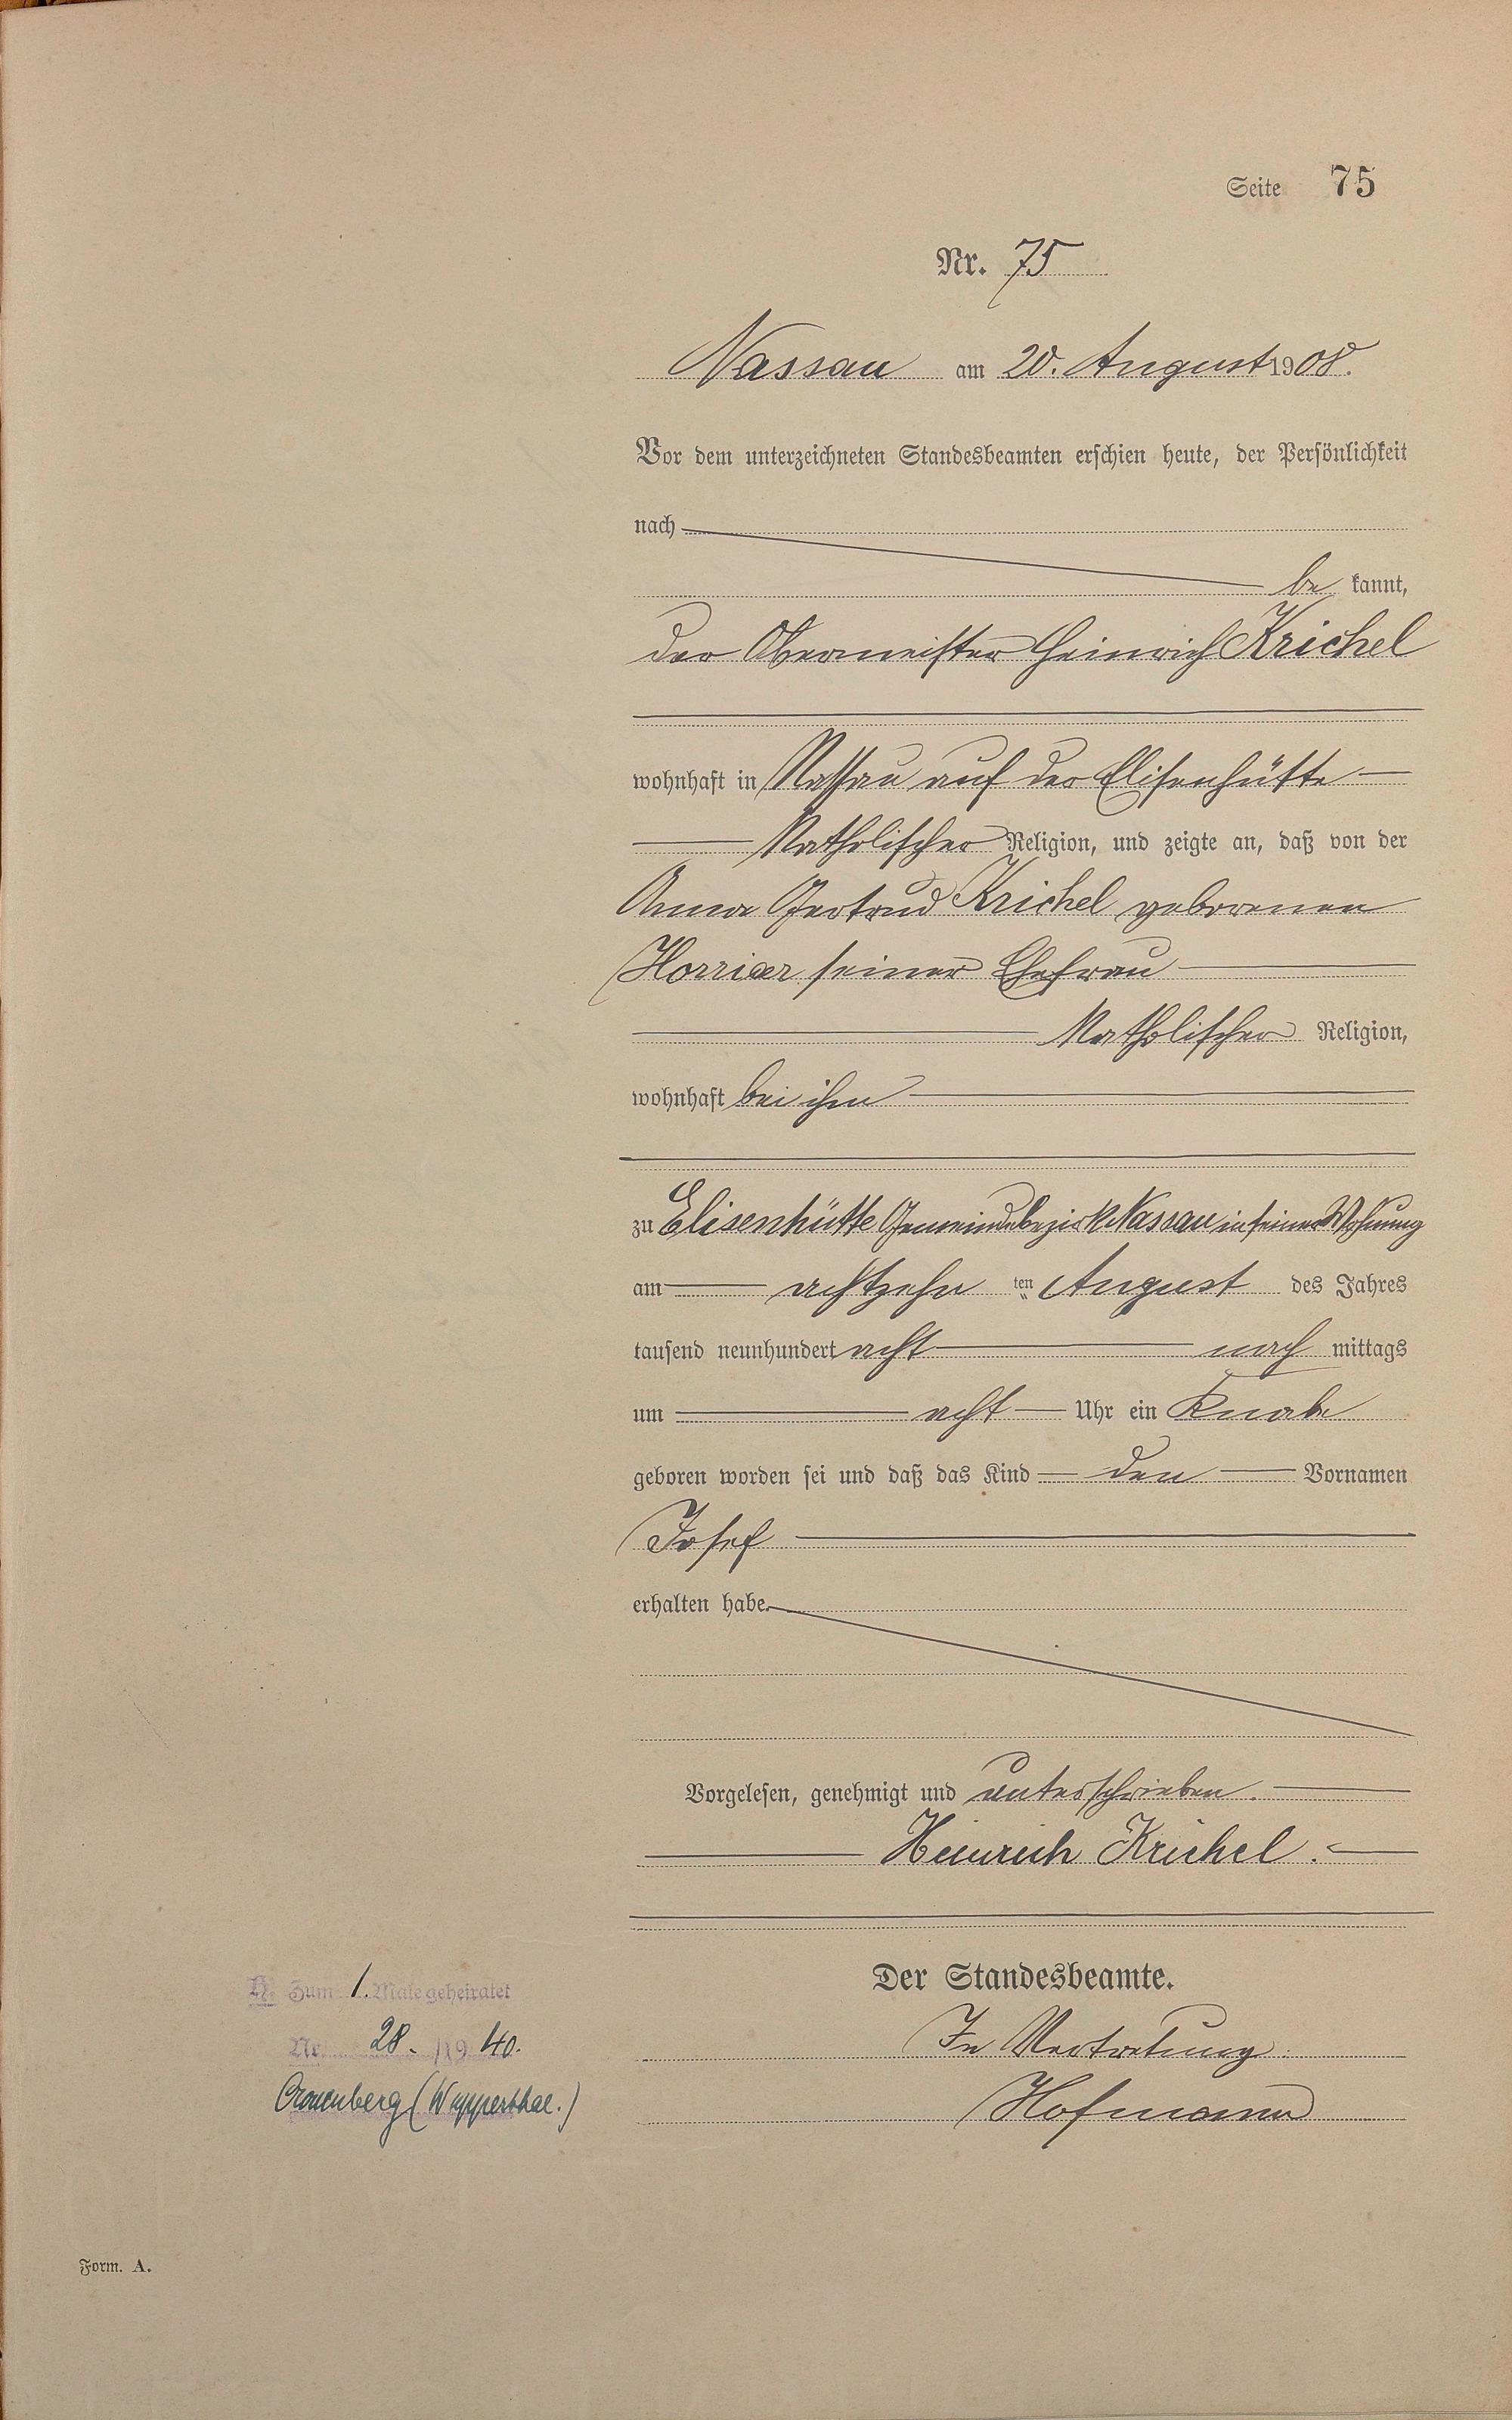 Seite 75
Nr. 75
Nassau am 20. August 1908.
Vor dem unterzeichneten Standesbeamten erschien heute, der Persönlichkeit
nach
be kannt,
der Obermeister Heinrich Krichel
wohnhaft in Nassau auf der Elisenhütte
Katholischer Religion, und zeigte an, daß von der
Anna Gertrud Krichel geborenen
seiner Ehefrau
Katholischer Religion,
wohnhaft bei ihm
zu Elisenhütte Gemeindebezirk Nassau in seiner Wohnung
am achtzehn ten August des Jahres
tausend neunhundert acht nach mittags
um acht Uhr ein Knabe
geboren worden sei und daß das Kind den Vornamen
Josef
erhalten habe.
Vorgelesen, genehmigt und unterschrieben.
Heinrich Krichel.
Der Standesbeamte.
In Vertretung.
Hofmann
Zum 1. Male geheiratet
Nr. 28. /1940.
Cronenberg (Wupperthal.)
Form. A.